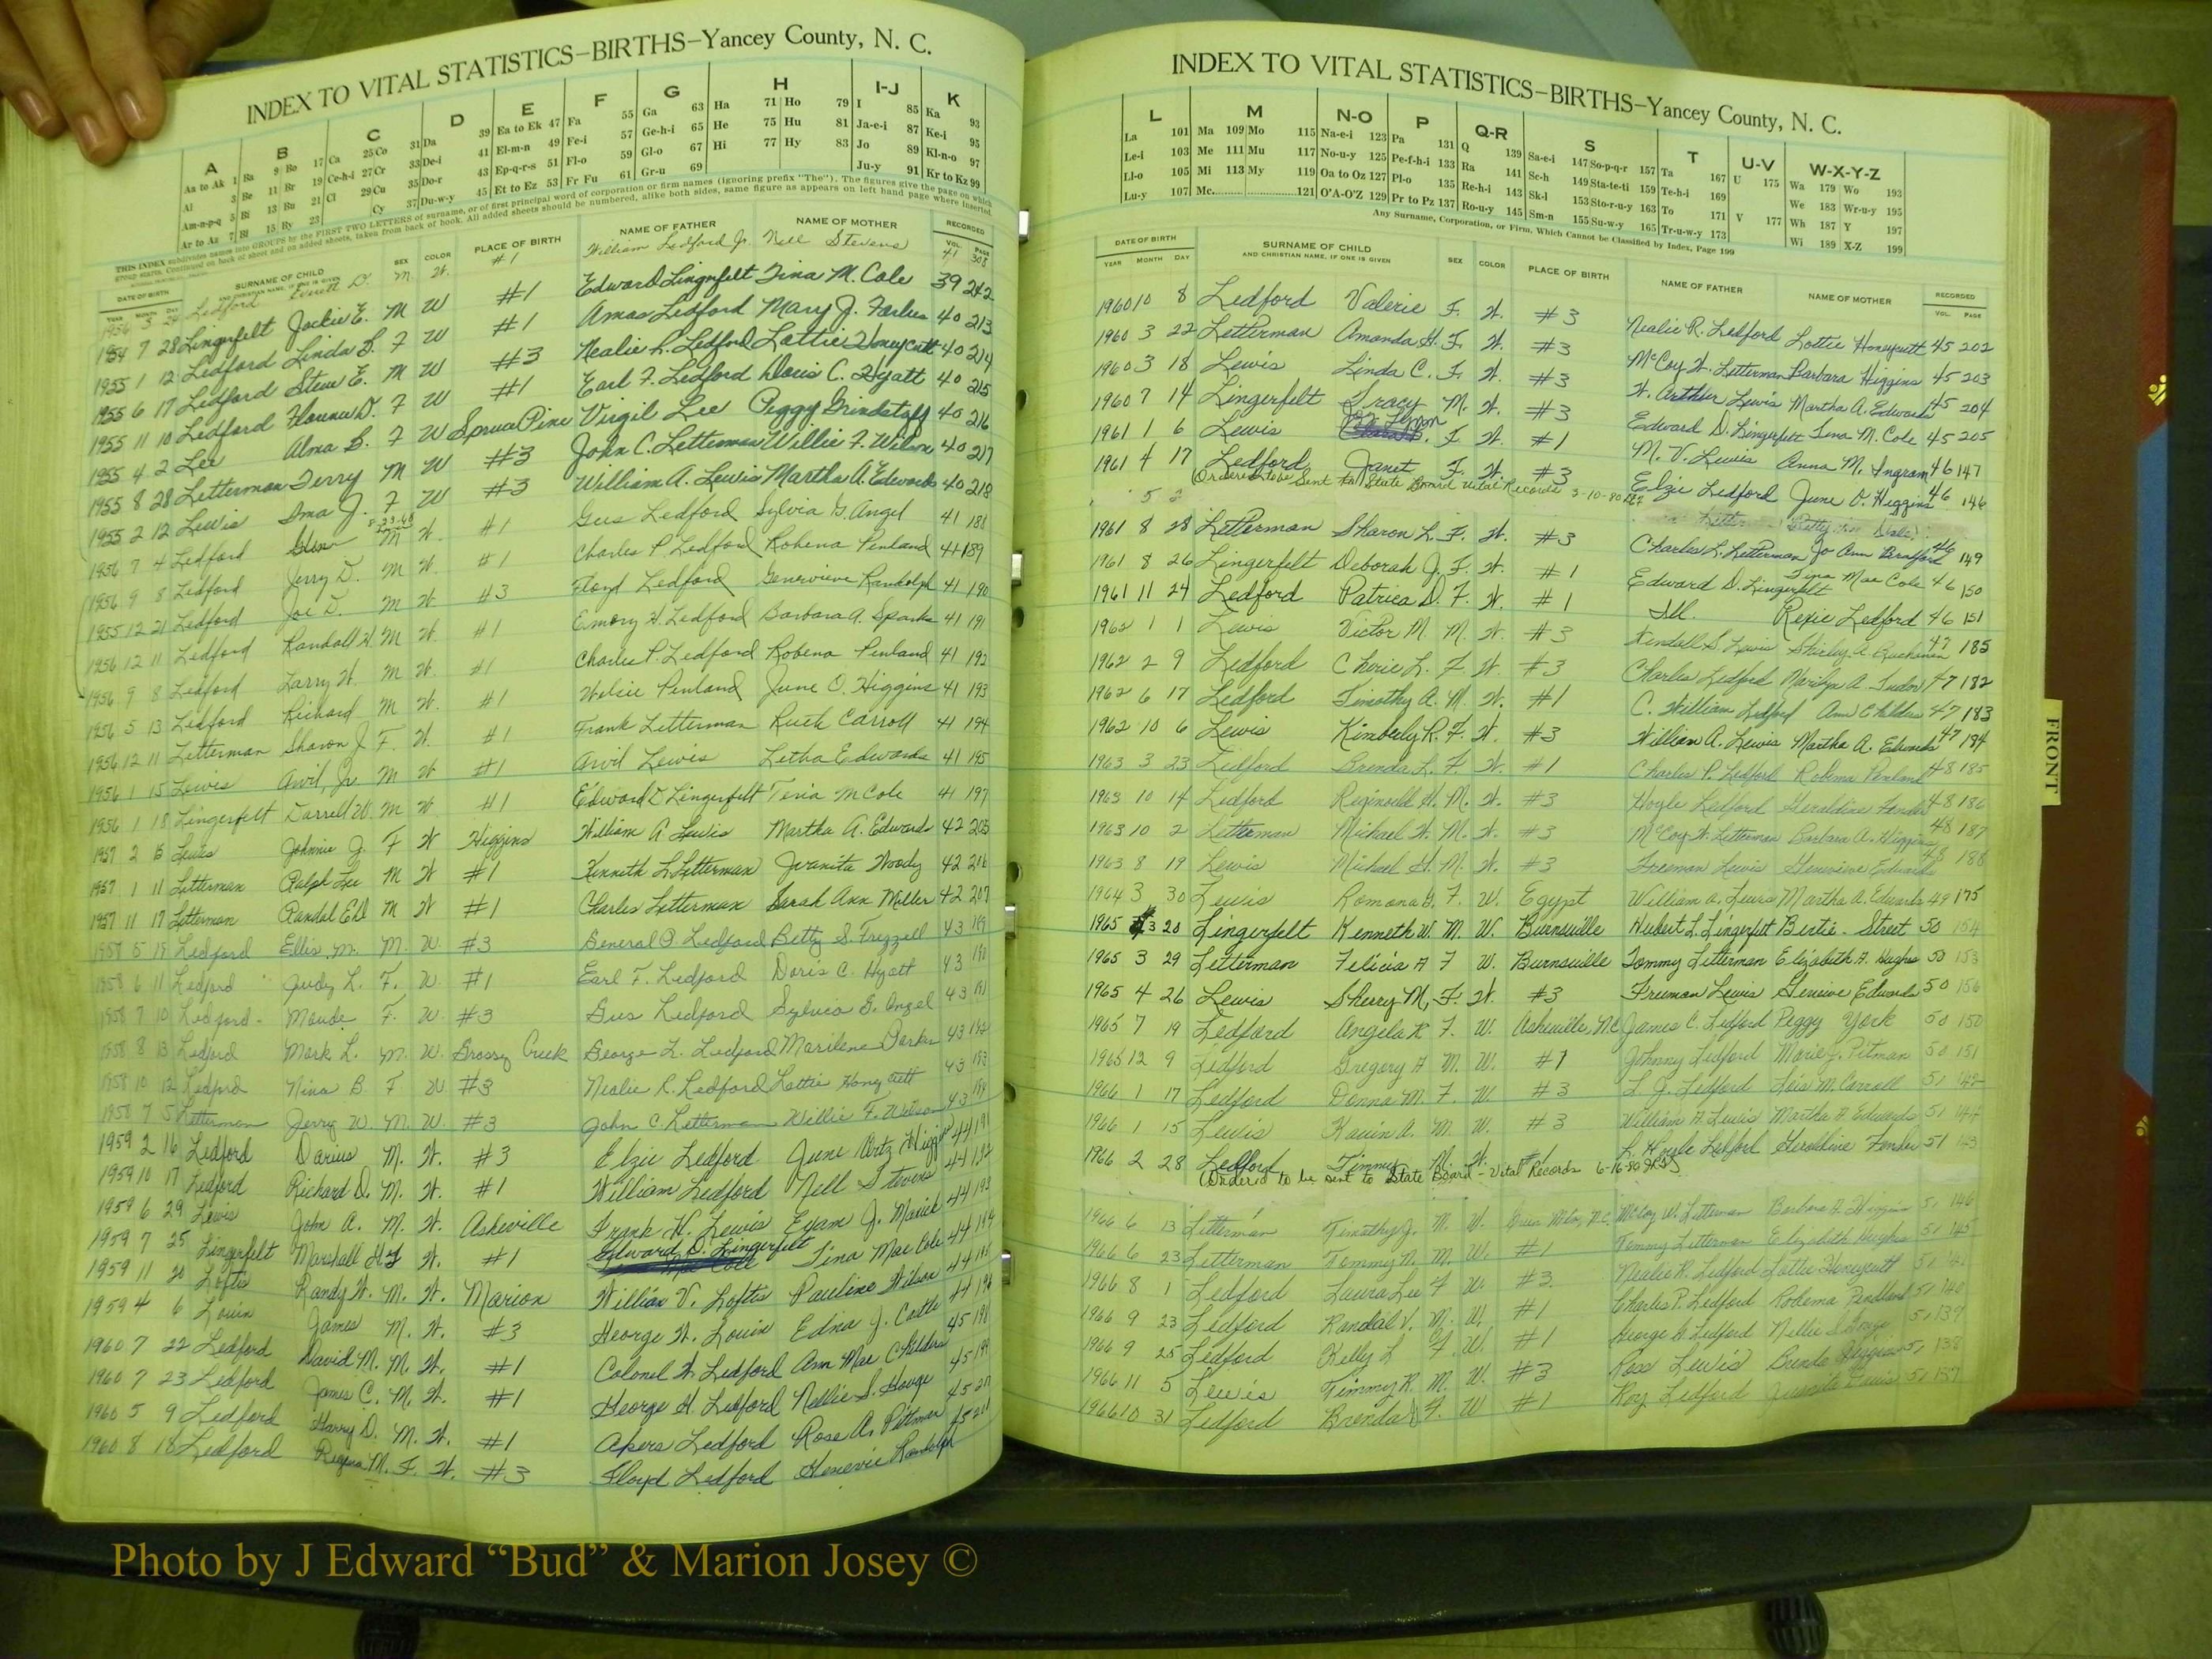 INDEX TO VITAL STATISTICS–BIRTHS–Yancey County, N. C.
A B C D E F G H I-J K
Aa to Ak 1 Ba 9 Bo 17 Ca 25 Co 31 Da 39 Ea to Ek 47 Fa 55 Ga 63 Ha 71 Ho 79 I 85 Ka 93
Al 3 Be 11 Br 19 Ce-h-i 27 Cr 33 De-i 41 El-m-n 49 Fe-i 57 Ge-h-i 65 He 75 Hu 81 Ja-e-i 87 Ke-i 95
Am-n-p-q 5 Bi 13 Bu 21 Cl 29 Cu 35 Do-r 43 Ep-q-r-s 51 Fl-o 59 Gl-o 67 Hi 77 Hy 83 Jo 89 Kl-n-o 97
Ar to Az 7 Bl 15 By 23 Cy 37 Du-w-y 45 Et to Ez 53 Fr Fu 61 Gr-u 69 Ju-y 91 Kr to Kz 99
THIS INDEX subdivides names into GROUPS by the FIRST TWO LETTERS of surname, or of first principal word of corporation or firm names (ignoring prefix "The"). The figures give the page on which
group starts. Continued on back of sheet and on added sheets, taken from back of book. All added sheets should be numbered, alike both sides, same figure as appears on left hand page where inserted.
DATE OF BIRTH SURNAME OF CHILD SEX COLOR PLACE OF BIRTH NAME OF FATHER NAME OF MOTHER RECORDED
YEAR MONTH DAY AND CHRISTIAN NAME, IF ONE IS GIVEN VOL. PAGE
1956 3 Ledford Everett D. M. W. #1 William Ledford Jr. Nell Stevens 41 308
1954 7 28 Lingerfelt Jackie E. M W #1 Edward D Lingerfelt Tina M. Cole 39 242
1955 1 12 Ledford Linda F W #1 Amos Ledford Mary J. 40 213
1955 6 17 Ledford Steve E. M W #3 Nealie R. Ledford Lottie Honeycutt 40 214
1955 11 10 Ledford Florence D. F W #1 Earl F. Ledford Doris C. Hyatt 40 215
1955 4 2 Lee Alma B. F W Spruce Pine Virgil Lee Peggy Grindstaff 40 216
1955 8 28 Letterman Terry M W #3 John C. Letterman Willie F. Wilson 40 217
1955 2 12 Lewis Ima J. F W #3 William A. Lewis Martha A. Edwards 40 218
1956 7 4 Ledford M W. #1 Gus Ledford Sylvia G. Angel 41 188
1956 9 8 Ledford Jerry D. M W. #1 Charles P. Ledford Robena Penland 41 189
1955 12 21 Ledford Joe D. M W. #3 Floyd Ledford Genevieve Randolph 41 190
1956 12 11 Ledford Randall H. M W. #1 Emory H. Ledford Barbara A. Sparks 41 191
1956 9 8 Ledford Larry W. M W. #1 Charles P. Ledford Robena Penland 41 192
1956 5 13 Ledford Richard M W. #1 Welsie Penland June O. Higgins 41 193
1956 12 11 Letterman Sharon J. F. W. #1 Frank Letterman Ruth Carroll 41 194
1956 1 15 Lewis Arvil, Jr. M W #1 Arvil Lewis Letha Edwards 41 195
1956 1 18 Lingerfelt Darrell W. M W #1 Edward D Lingerfelt Tina M Cole 41 197
1957 2 15 Lewis Johnnie J. F W Higgins William A. Lewis Martha A. Edwards 42 205
1957 1 11 Letterman Ralph Lee M W #1 Kenneth L Letterman Juanita Woody 42 206
1957 11 17 Letterman Randal M W #1 Charles Letterman Sarah Ann Miller 42 207
1958 5 19 Ledford Ellis M. M. W. #3 General Ledford Betty S. Frizzell 43 189
1958 6 11 Ledford Judy L. F. W. #1 Earl F. Ledford Doris C. Hyatt 43 190
1958 7 10 Ledford Maude F. W. #3 Gus Ledford Sylvia G. Angel 43 191
1958 8 13 Ledford Mark L. M. W. Brassy Creek George L. Ledford Marilene Parker 43 192
1958 10 12 Ledford Nina B. F W #3 Nealie R. Ledford Lottie Honeycutt 43 193
1958 7 5 Letterman Jerry W. M. W. #3 John C. Letterman Willie F. Wilson 43 194
1959 2 16 Ledford Darius M. W. #3 Elzie Ledford June Higgins 44 191
1959 10 17 Ledford Richard D. M. W. #1 William Ledford Nell Stevens 44 192
1959 6 29 Lewis John A. M. W. Asheville Frank H. Lewis J. 44 193
1959 7 25 Lingerfelt Marshall W. #1 Edward D. Lingerfelt Tina Mae Cole 44 194
1959 11 20 Loftis Randy W. M. W. Marion William V. Loftis Pauline Wilson 44 195
1959 4 6 Louin James M. W. #3 George W. Louin Edna J. 44 196
1960 7 22 Ledford David M. M. W. #1 Colonel W Ledford Ann Mae Childers 45 198
1960 7 23 Ledford James C. M. W. #1 George H. Ledford Nellie S. 45 199
1960 5 9 Ledford Harry D. M. W. #1 Akers Ledford Rose A. Pittman 45
1960 8 18 Ledford Regina M. F. W. #3 Floyd Ledford Randolph 45 201
INDEX TO VITAL STATISTICS–BIRTHS–Yancey County, N. C.
L M N-O P Q-R S T U-V W-X-Y-Z
La 101 Ma 109 Mo 115 Na-e-i 123 Pa 131 Q 139 Sa-e-i 147 So-p-q-r 157 Ta 167 U 175 Wa 179 Wo 193
Le-i 103 Me 111 Mu 117 No-u-y 125 Pe-f-h-i 133 Ra 141 Sc-h 149 Sta-te-ti 159 Te-h-i 169 We 183 Wr-u-y 195
Ll-o 105 Mi 113 My 119 Oa to Oz 127 Pl-o 135 Re-h-i 143 Sk-l 153 Sto-r-u-y 163 To 171 V 177 Wh 187 Y 197
Lu-y 107 Mc 121 O'A-O'Z 129 Pr to Pz 137 Ro-u-y 145 Sm-n 155 Su-w-y 165 Tr-u-w-y 173 Wi 189 X-Z 199
Any Surname, Corporation, or Firm, Which Cannot be Classified by Index, Page 199
DATE OF BIRTH SURNAME OF CHILD SEX COLOR PLACE OF BIRTH NAME OF FATHER NAME OF MOTHER RECORDED
YEAR MONTH DAY AND CHRISTIAN NAME, IF ONE IS GIVEN VOL. PAGE
1960 10 8 Ledford Valerie F. W. #3 Nealie R. Ledford Lottie Honeycutt 45 202
1960 3 22 Letterman Amanda H. F. W. #3 McCoy W. Letterman Barbara Higgins 45 203
1960 3 18 Lewis Linda C. F. W. #3 W. Arthur Lewis Martha A. Edwards 45 204
1960 7 14 Lingerfelt Tracy M. W. #3 Edward D. Lingerfelt Tina M. Cole 45 205
1961 1 6 Lewis F. W. #1 M. V. Lewis Anna M. Ingram 46 147
1961 4 17 Ledford Janet F. W. #3 Elzie Ledford June O. Higgins 46 146
Ordered to be Sent to State Board Vital Records 3-10-80
1961 8 28 Letterman Sharon L. F. W. #3 Charles L. Letterman Jo Ann Bradford 46 149
1961 8 26 Lingerfelt Deborah J. F. W. #1 Edward D. Lingerfelt Tina Mae Cole 46 150
1961 11 24 Ledford Patrica D. F. W. #1 Ill. Rexie Ledford 46 151
1962 1 1 Lewis Victor M. M. W. #3 Kendall S. Lewis Shirley A. Buchanan 47 185
1962 2 9 Ledford Cherie L. F. W. #3 Charles Ledford Marilyn A. Tudor 47 182
1962 6 17 Ledford Timothy A. M. W. #1 C. William Ledford Ann Childers 47 183
1962 10 6 Lewis Kimberly R. F. W. #3 William A. Lewis Martha A. Edwards 47 184
1963 3 23 Ledford Brenda L. F. W. #1 Charles P. Ledford Robena Penland 48 185
1963 10 14 Ledford Reginald H. M. W. #3 Hoyle Ledford Geraldine Fender 48 186
1963 10 2 Letterman Michael W. M. W. #3 McCoy W. Letterman Barbara A. Higgins 48 187
1963 8 19 Lewis Michael H. M. W. #3 Freeman Lewis Genevieve Edwards 48 188
1964 3 30 Lewis Romona F. W. Egypt William A. Lewis Martha A. Edwards 49 175
1965 3 20 Lingerfelt Kenneth W. M. W. Burnsville Hubert L. Lingerfelt Bertie Street 50 154
1965 3 29 Letterman Felicia A F W. Burnsville Tommy Letterman Elizabeth A. Hughes 50 153
1965 4 26 Lewis Sherry M. F. W. #3 Freeman Lewis Edwards 50 156
1965 7 19 Ledford Angela K F. W. Asheville, N.C. James C. Ledford Peggy York 50 150
1965 12 9 Ledford Gregory A M. W. #1 Johnny Ledford Marie J. Pitman 50 151
1966 1 17 Ledford Donna M. F. W. #3 L. J. Ledford Lois M. Carroll 51 142
1966 1 15 Lewis Kevin A. M. W. #3 William A. Lewis Martha A. Edwards 51 144
1966 2 28 Ledford Timmy M. W. #1 L. Hoyle Ledford Geraldine Fender 51 143
(Ordered to be sent to State Board - Vital Records 6-16-80
1966 6 13 Letterman Timothy J. M. W. N.C. McCoy W. Letterman Barbara A. Higgins 51 146
1966 6 23 Letterman Tommy N. M. W. #1 Tommy Letterman Elizabeth Hughes 51 145
1966 8 1 Ledford Laura Lee F W. #3 Nealie R. Ledford Lottie Honeycutt 51 141
1966 9 23 Ledford Randal V. M. W. #1 Charles P. Ledford Robema Pendland 51 140
1966 9 25 Ledford Kelly L F. W. #1 George H. Ledford Nellie 51 139
1966 11 5 Lewis Timmy R. M. W. #3 Ross Lewis Brenda Higgins 51 138
1966 10 31 Ledford Brenda F. W #1 Roy Ledford Juanita Davis 51 137
FRONT
Photo by J Edward “Bud” & Marion Josey ©